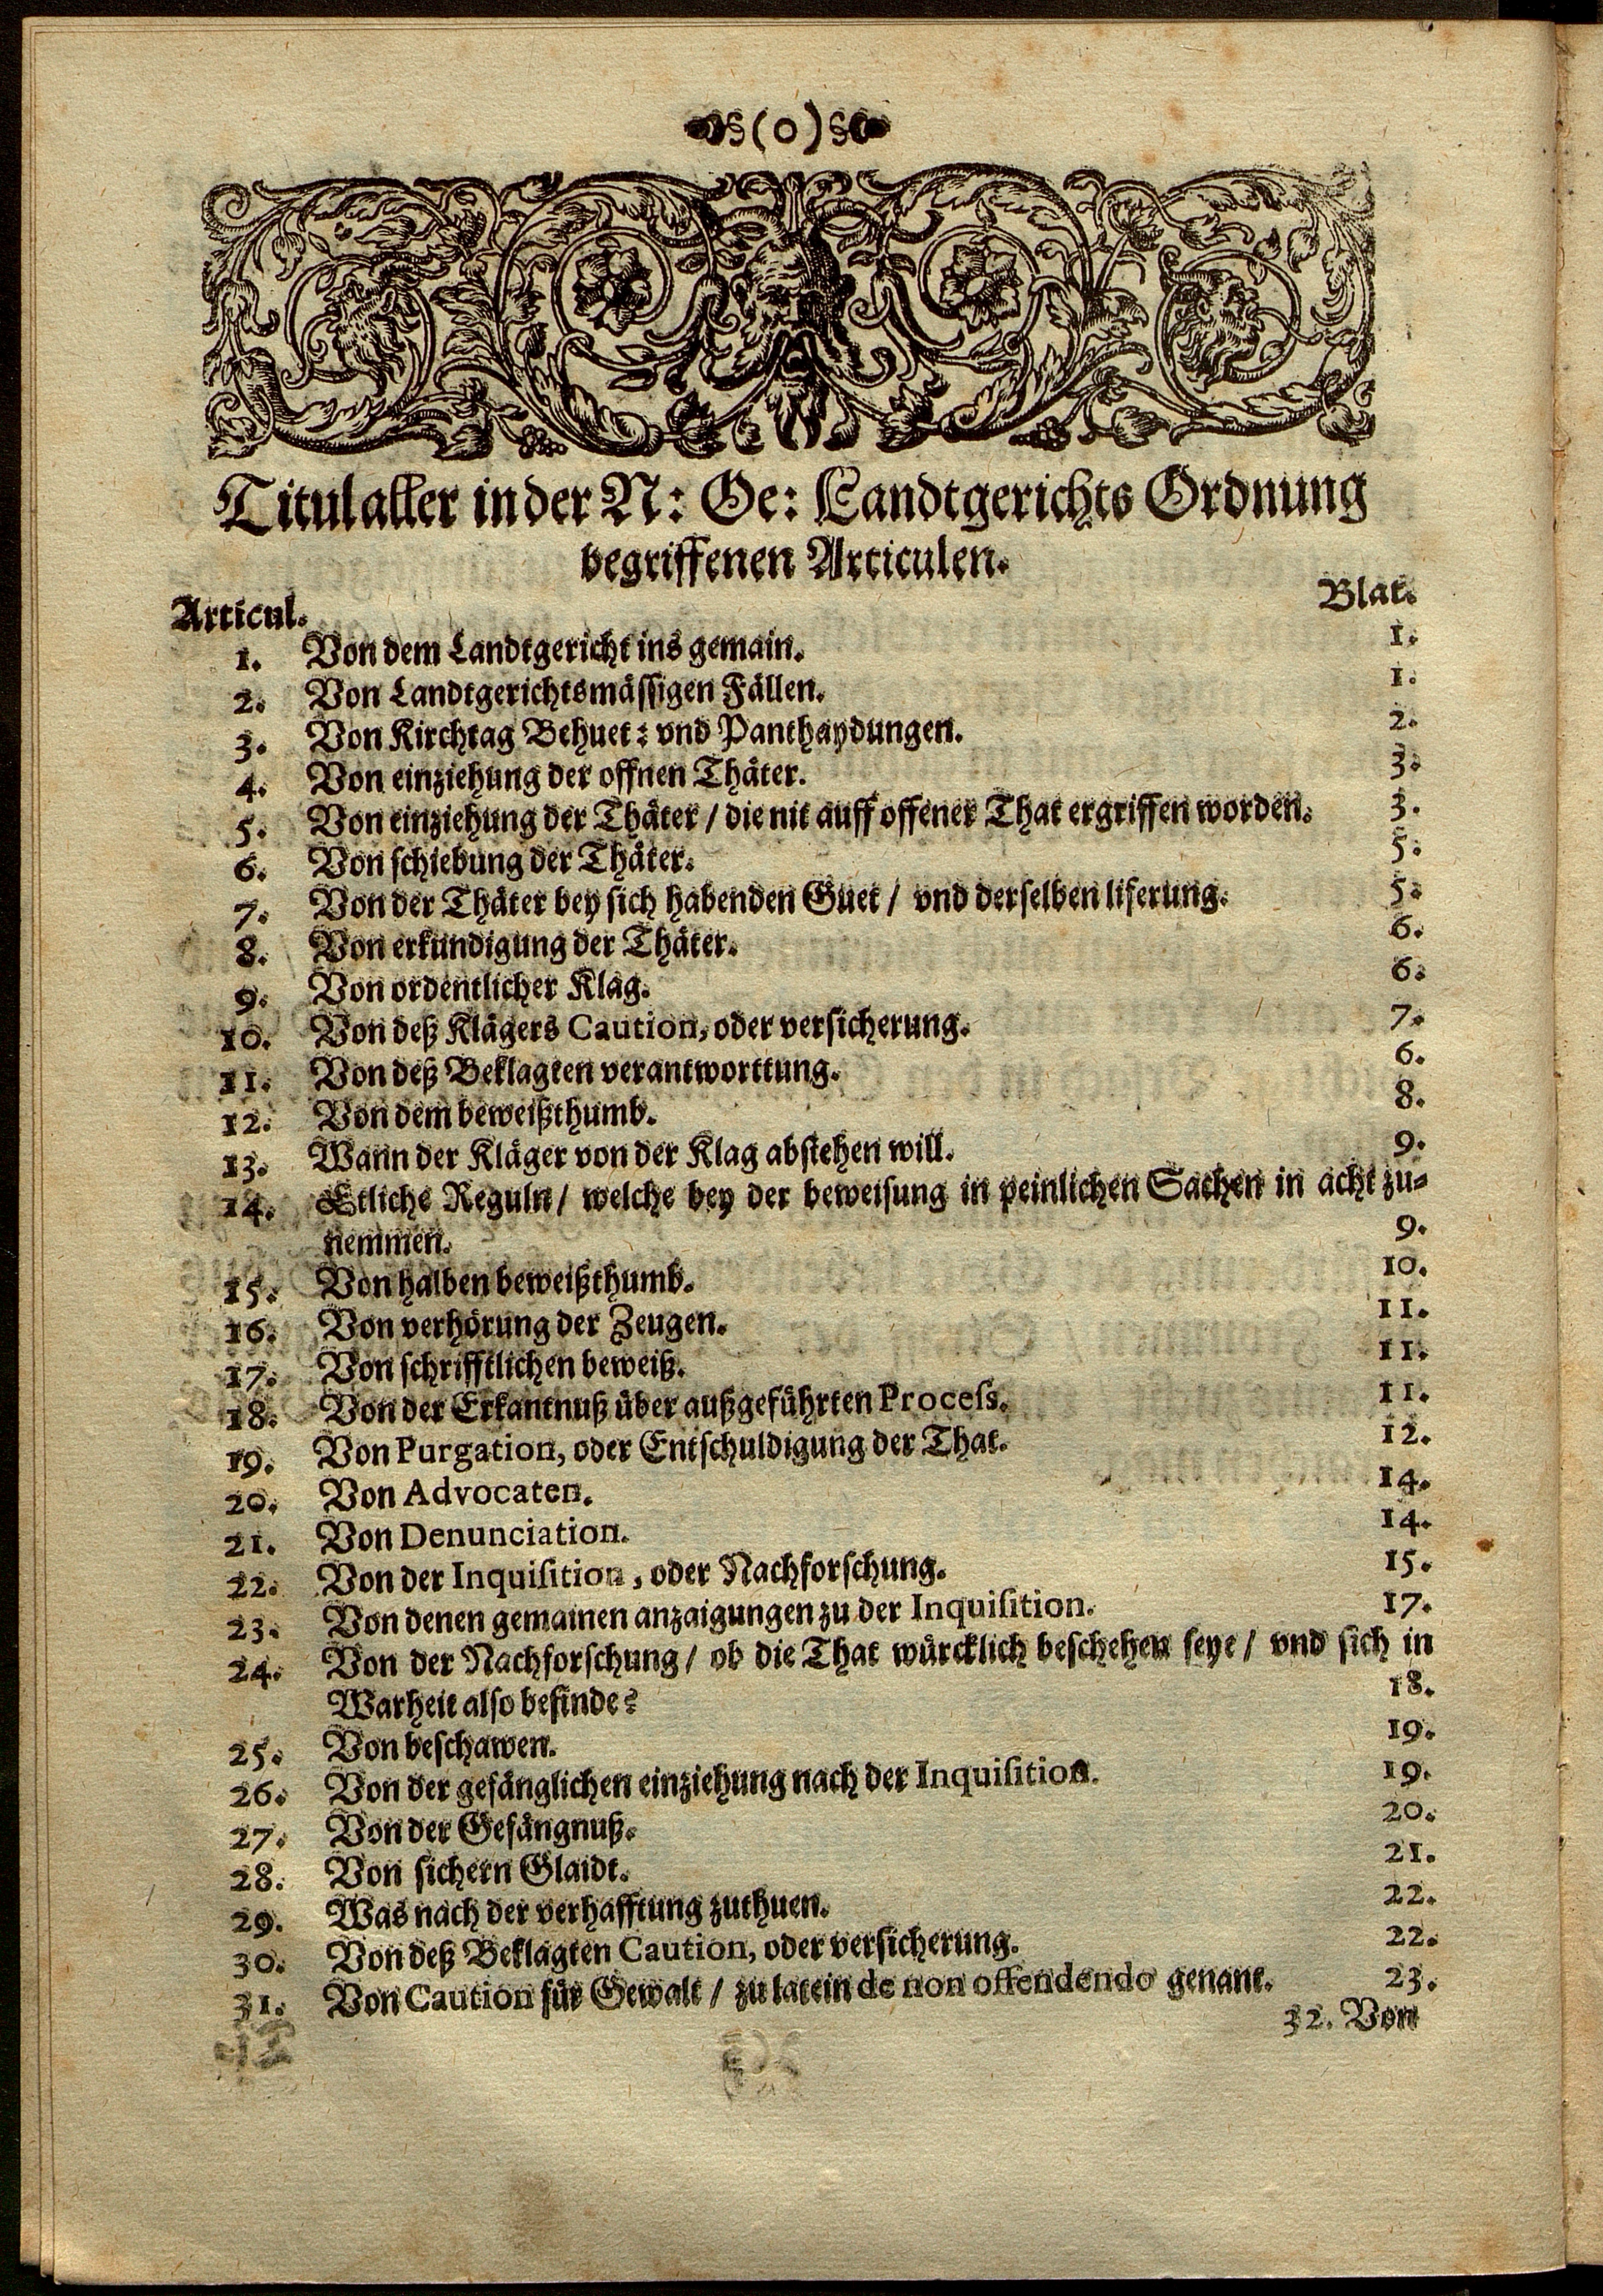 §(0)§
Titul aller in der N: Oe: Landtgerichts Ordnung
begriffenen Articulen.
Articul. Blat.
1. Von dem Landtgericht ins gemain. 1.
2. Von Landtgerichtsmässigen Fällen. 1.
3. Von Kirchtag Behuet: vnd Panthaydungen. 2.
4. Von einziehung der offnen Thäter. 3.
5. Von einziehung der Thäter / die nit auff offener That ergriffen worden. 3.
6. Von schiebung der Thäter. 5.
7. Von der Thäter bey sich habenden Guet / vnd derselben liferung. 5.
8. Von erkundigung der Thäter. 6.
9. Von ordentlicher Klag. 6.
10. Von deß Klägers Caution, oder versicherung. 7.
11. Von deß Beklagten verantworttung. 6.
12. Von dem beweißthumb. 8.
13. Wann der Kläger von der Klag abstehen will. 9.
14. Etliche Reguln / welche bey der beweisung in peinlichen Sachen in acht zu-
nemmen. 9.
15. Von halben beweißthumb. 10.
16. Von verhörung der Zeugen. 11.
17. Von schrifftlichen beweiß. 11.
18. Von der Erkantnuß über außgeführten Process. 11.
19. Von Purgation, oder Entschuldigung der That. 12.
20. Von Advocaten. 14.
21. Von Denunciation. 14.
22. Von der Inquisition, oder Nachforschung. 15.
23. Von denen gemainen anzaigungen zu der Inquisition. 17.
24. Von der Nachforschung / ob die That würcklich beschehen seye / vnd sich in
Warheit also befinde? 18.
25. Von beschawen. 19.
26. Von der gefänglichen einziehung nach der Inquisition. 19.
27. Von der Gefängnuß. 20.
28. Von sichern Glaidt. 21.
29. Was nach der verhafftung zuthuen. 22.
30. Von deß Beklagten Caution, oder versicherung. 22.
31. Von Caution für Gewalt / zu latein de non offendendo genant. 23.
32. Von